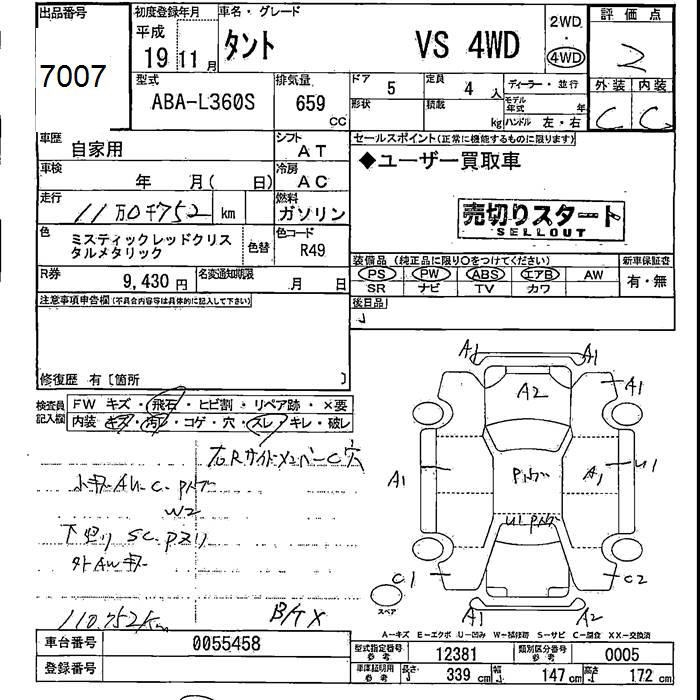 出品番号
7007
初度登録年月
平成
19 11 月
車名・グレード
タント VS 4WD
2WD
・
4WD
評価点
2
外装 内装
C C
型式
ABA-L360S
排気量
659
CC
ドア
5
定員
4 人
形状
積載
kg
ディーラー・並行
モデル年式 年
ハンドル 左・右
車歴
自家用
シフト
AT
車検
年 月( 日)
冷房
AC
走行
11万0千752 km
燃料
ガソリン
色
ミスティックレッドクリスタルメタリック
色替
色コード
R49
R券
9,430 円
名変通知期限
月 日
セールスポイント(正常に機能するものに限ります)
◆ユーザー買取車
売切りスタート
SELLOUT
装備品(純正品に限り○をつけてください)
新車保証書
PS PW ABS エアB AW
有・無
SR ナビ TV カワ
後日品
注意事項申告欄(不具合内容等は具体的に記入して下さい)
修復歴 有〔箇所 〕
検査員記入欄
FW キズ・飛石・ヒビ割・リペア跡・×要
内装 キズ・汚れ・コゲ・穴・スレ・キレ・破レ
右Rサイドメンバー C穴
W2
110,752km
A1 A1
A2
A1
A1
A1 U1
C1
C2
A1
A2
スペア
A-キズ E-エクボ U-凹み W-補修跡 S-サビ C-腐食 XX-交換済
車台番号
0055458
登録番号
型式指定番号
参考
12381
類別区分番号
参考
0005
車庫証明用
参考
長さ 339 cm
幅 147 cm
高さ 172 cm